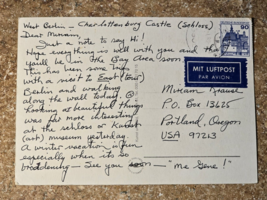 West Berlin — Charlottenburg Castle (Schloss)
Dear Miriam,
Just a note to say Hi!
Hope everything is well with you and that
you'll be in the Bay Area soon
This has been some trip
with a visit to East (tour)
Berlin and walking
along the wall today. @
Looking at beautiful things
was far more interesting
at the schloss or Kunst
(art) museum yesterday.
A winter vacation is fun
especially when it's so
See you soon — "Me Gene!"
90
MIT LUFTPOST
PAR AVION
Miriam
P.O. Box 13625
Portland, Oregon
USA 97213